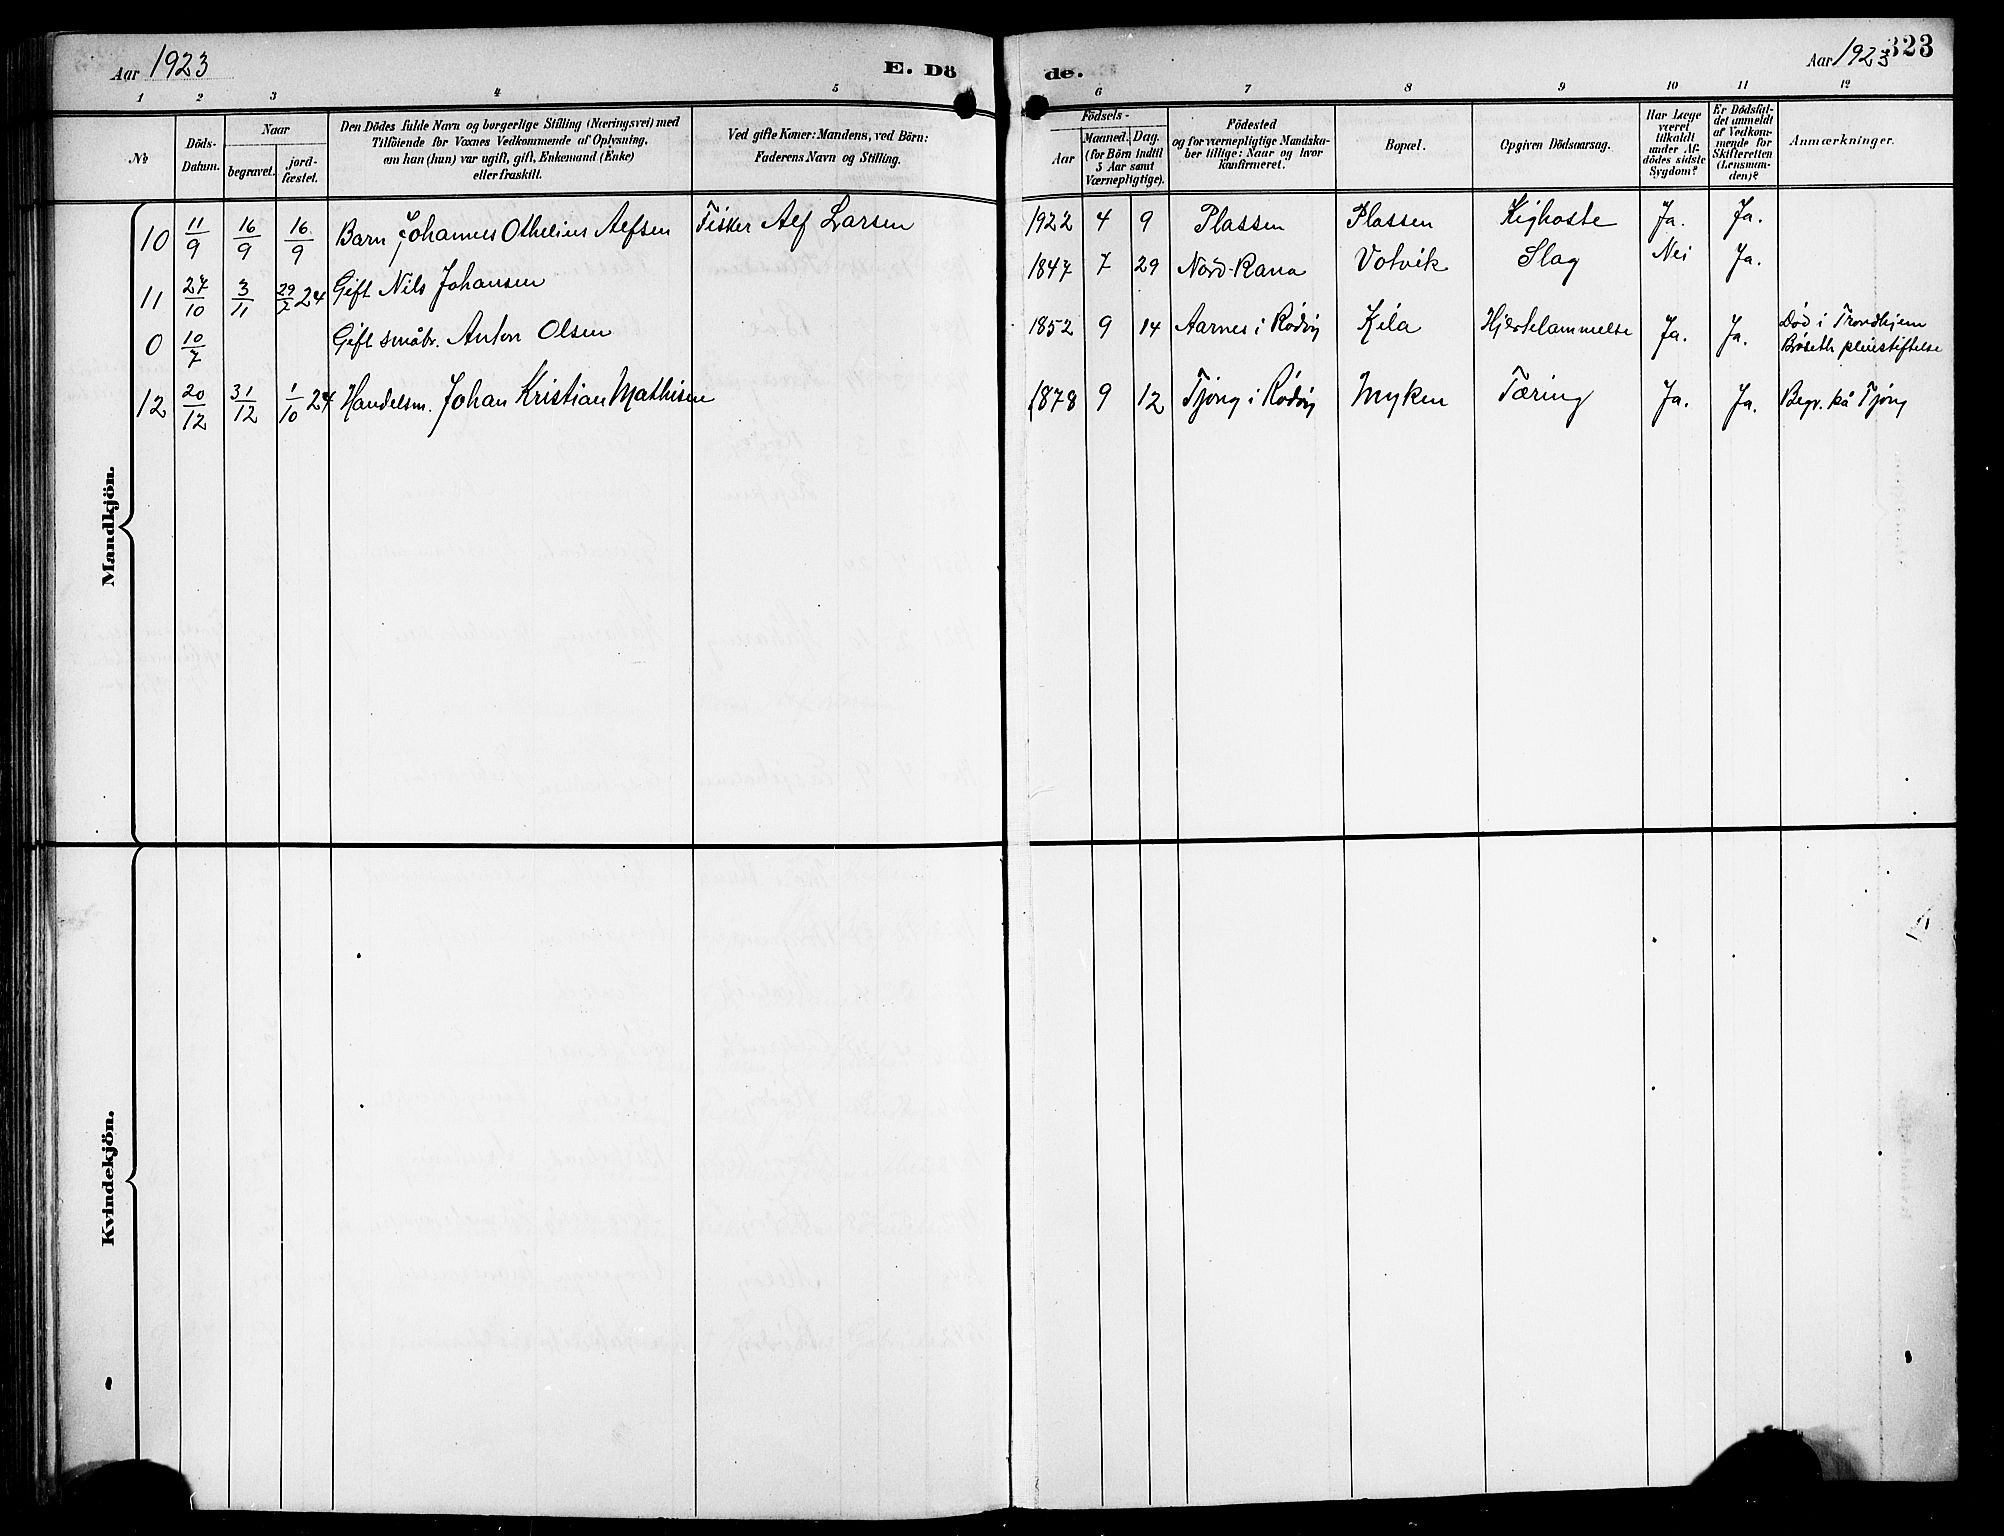 Aar 1923
E. Dö
de.
Aar 1923
323
1 2 3 4 5 6 7 8 9 10 11 12
No
Döds-Datum.
Naar
begravet.
jord-fæstet.
Den Dödes fulde Navn og borgerlige Stilling (Næringsvei) med
Tilföiende for Voxnes Vedkommende af Oplysning,
om han (hun) var ugift, gift, Enkemand (Enke)
eller fraskilt.
Ved gifte Koner: Mandens, ved Börn:
Faderens Navn og Stilling.
Födsels-
Aar
Maaned. Dag.
(for Börn indtil
5 Aar samt
Værnepligtige).
Födested
og for værnepligtige Mandska-
ber tillige: Naar og hvor
konfirmeret.
Bopæl.
Opgiven Dödsaarsag.
Har Læge
været
tilkaldt
under Af-
dödes sidste
Sygdom?
Er Dödsfal-
det anmeldt
af Vedkom-
mende for
Skifteretten
(Lensman-
den)?
Anmærkninger.
Mandkjön.
10 11/9 16/9 16/9 Barn Johannes Othelius Alfsen Fisker Alf Larsen 1922 4 9 Plassen Plassen Kighoste Ja. Ja.
11 27/10 3/11 29/7 24 Gift Nils Johansen 1847 7 29 Nord-Rana Votvik Slag Nei Ja.
0 10/7 Gift småbr. Anton Olsen 1852 9 14 Aarnes i Rødøy Kila Hjertelammelse Ja. Ja. Død i Trondhjem
Brøseth pleiestiftelse
12 20/12 31/12 1/10 24 Handelsm. Johan Kristian Mathisen 1878 9 12 Tjong i Rødøy Myken Tæring Ja. Ja. Begr. på Tjong
Kvindekjön.